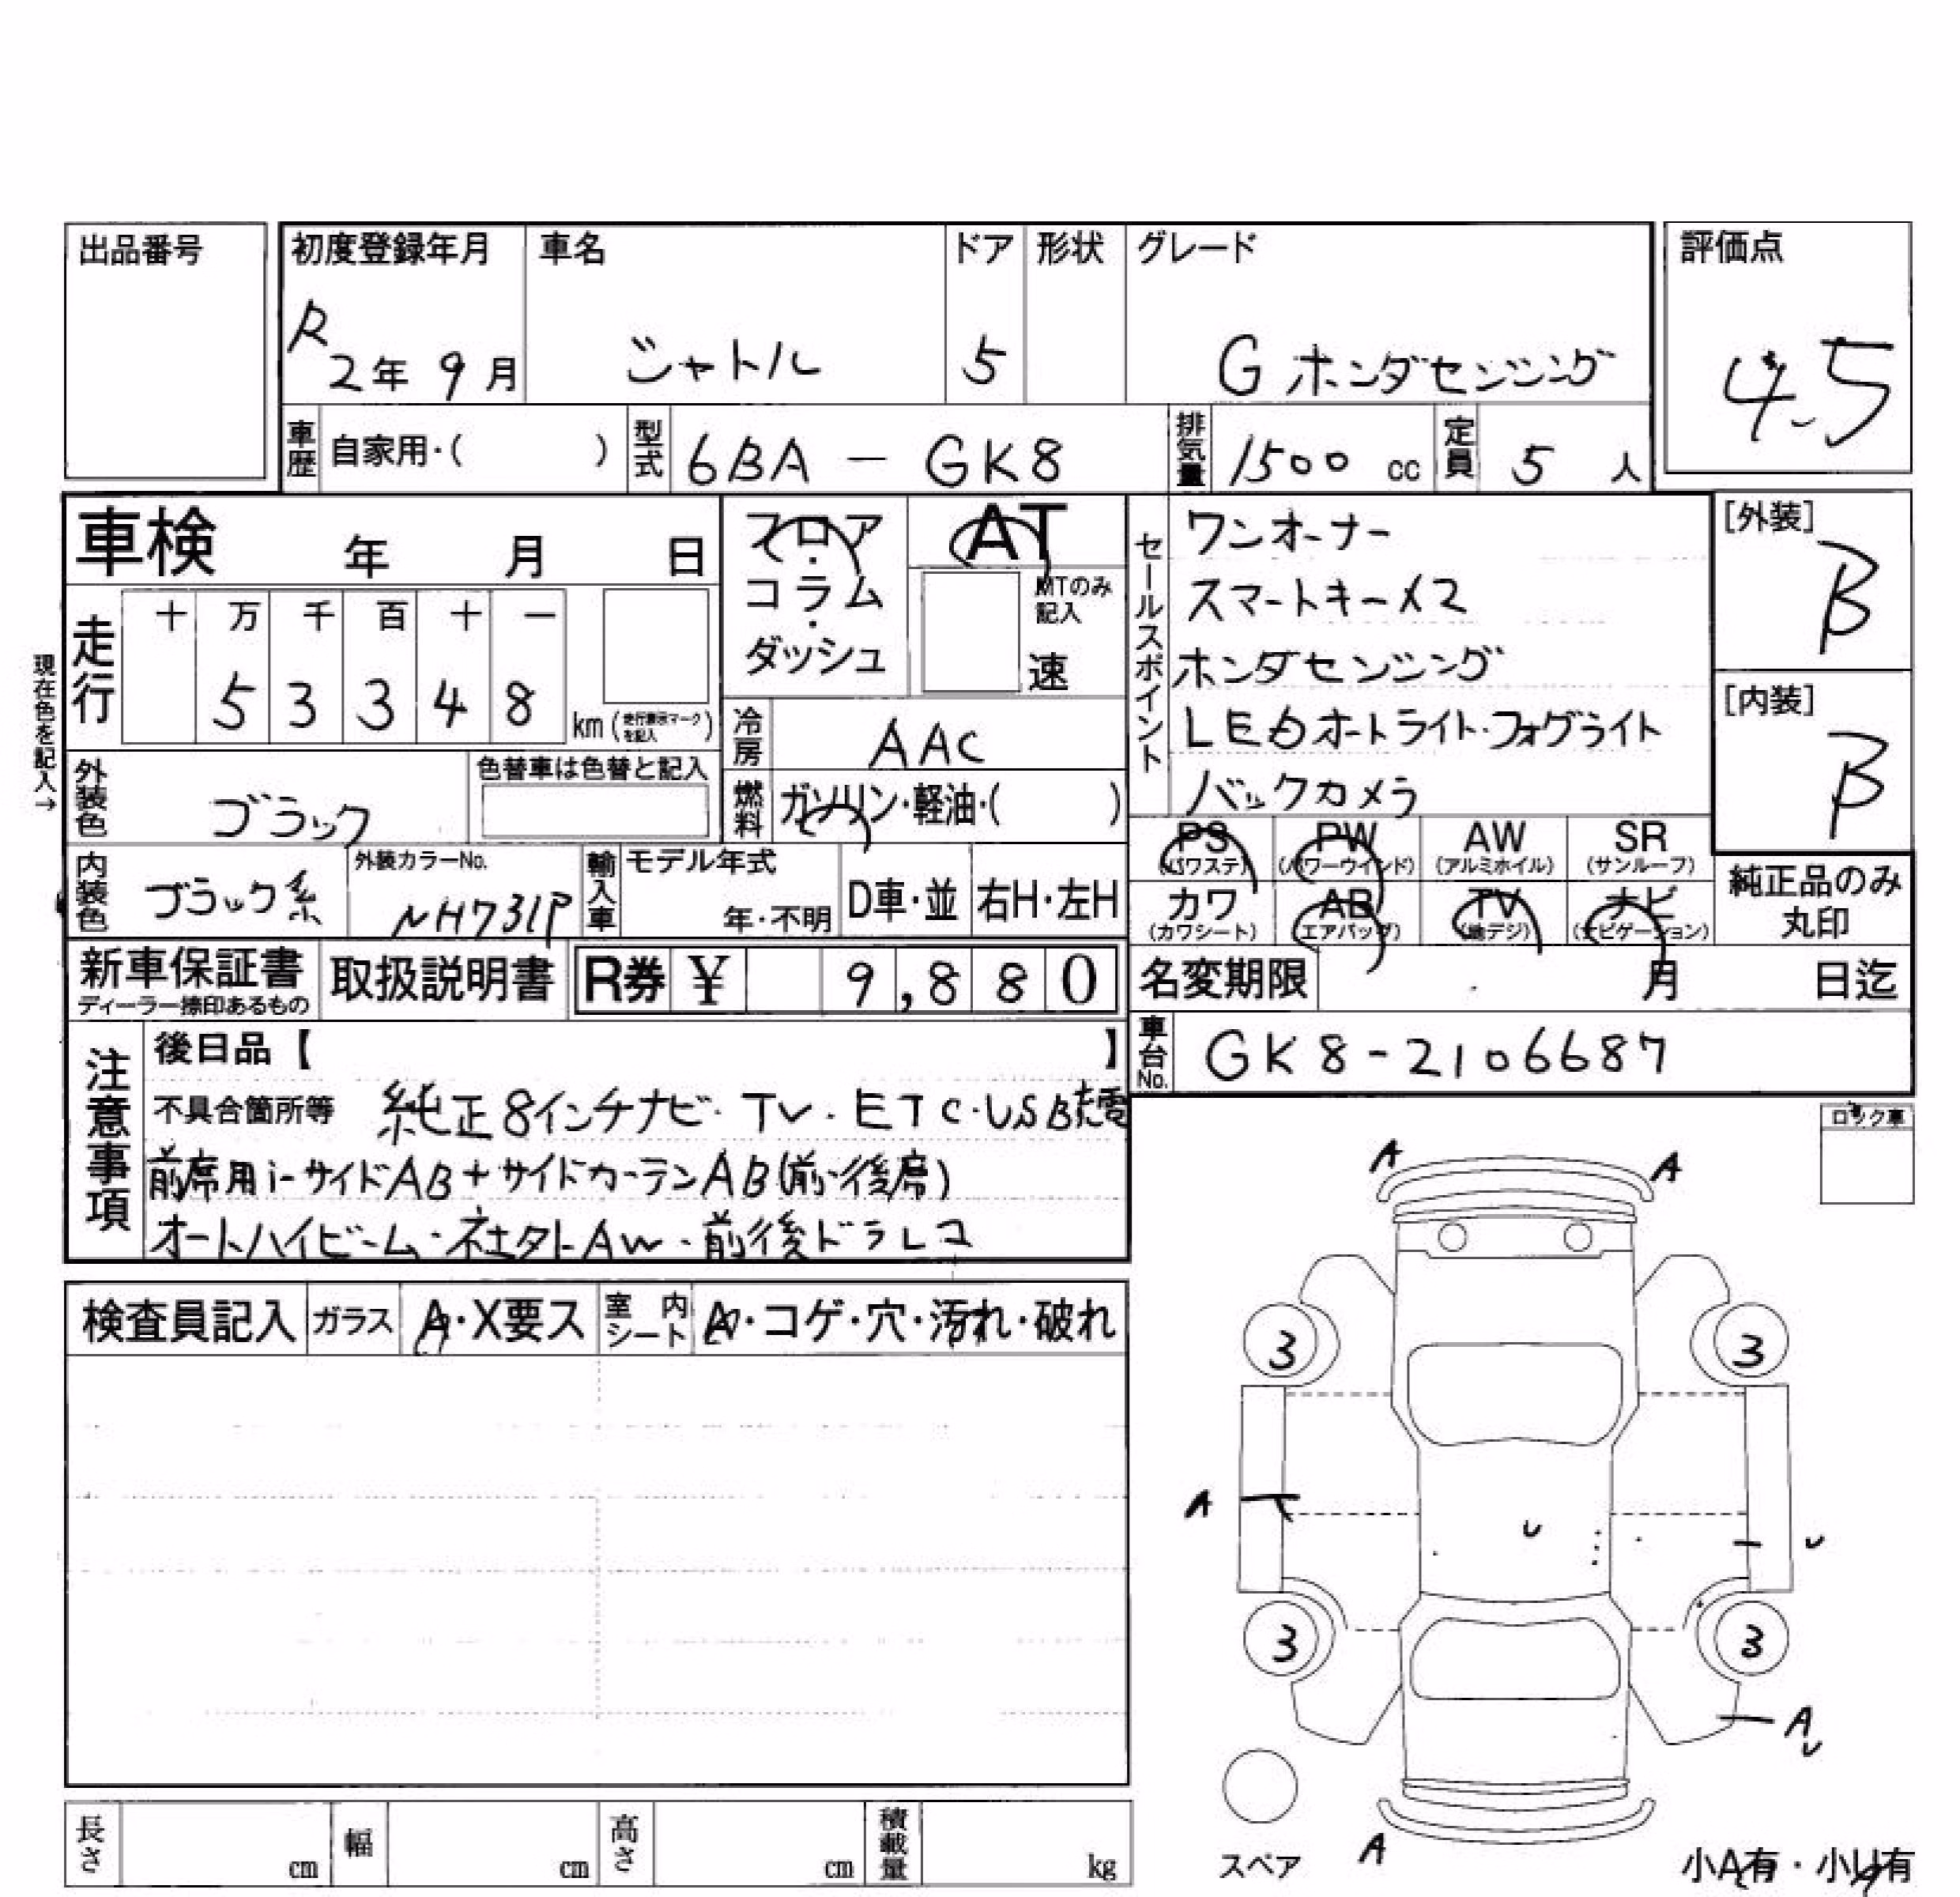 出品番号
初度登録年月 車名 ドア 形状 グレード 評価点
R2年 9月 シャトル 5 G ホンダセンシング 4.5
車歴 自家用・( ) 型式 6BA - GK8 排気量 1500 cc 定員 5 人
車検 年 月 日
フロア・コラム・ダッシュ
AT
MTのみ記入
速
走行 十 万 千 百 十 一
5 3 3 4 8 km (走行表示マークを記入)
現在色を記入→
冷房 AAC
外装色 ブラック 色替車は色替と記入
燃料 ガソリン・軽油・( )
内装色 ブラック系 外装カラーNo. NH731P 輸入車 モデル年式 年・不明 D車・並 右H・左H
セールスポイント
ワンオーナー
スマートキー×2
ホンダセンシング
LEDオートライト・フォグライト
バックカメラ
[外装] B
[内装] B
PS (パワステ) PW (パワーウインド) AW (アルミホイル) SR (サンルーフ)
カワ (カワシート) AB (エアバッグ) TV (地デジ) ナビ (ナビゲーション)
純正品のみ丸印
新車保証書 ディーラー捺印あるもの 取扱説明書 R券 ¥ 9,880
名変期限 月 日迄
車台No. GK8-2106687
注意事項
後日品【 】
不具合箇所等 純正8インチナビ・TV・ETC・USB
前席用i-サイドAB+サイドカーテンAB(前・後席)
オートハイビーム・社外AW・前後ドラレコ
ロック車
検査員記入 ガラス A・X要ス 室内シート A・コゲ・穴・汚れ・破れ
A A
3 3
A U U
3 3
A U
A
スペア
小A有・小U有
長さ cm 幅 cm 高さ cm 積載量 kg